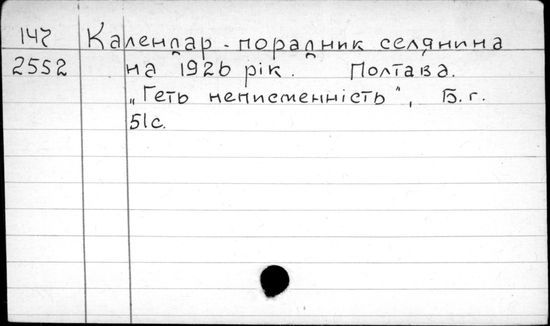 147 Календар-порадник селянина
2552 на 1926 рік. Полтава.
„Геть неписменність", Б.г.
51с.